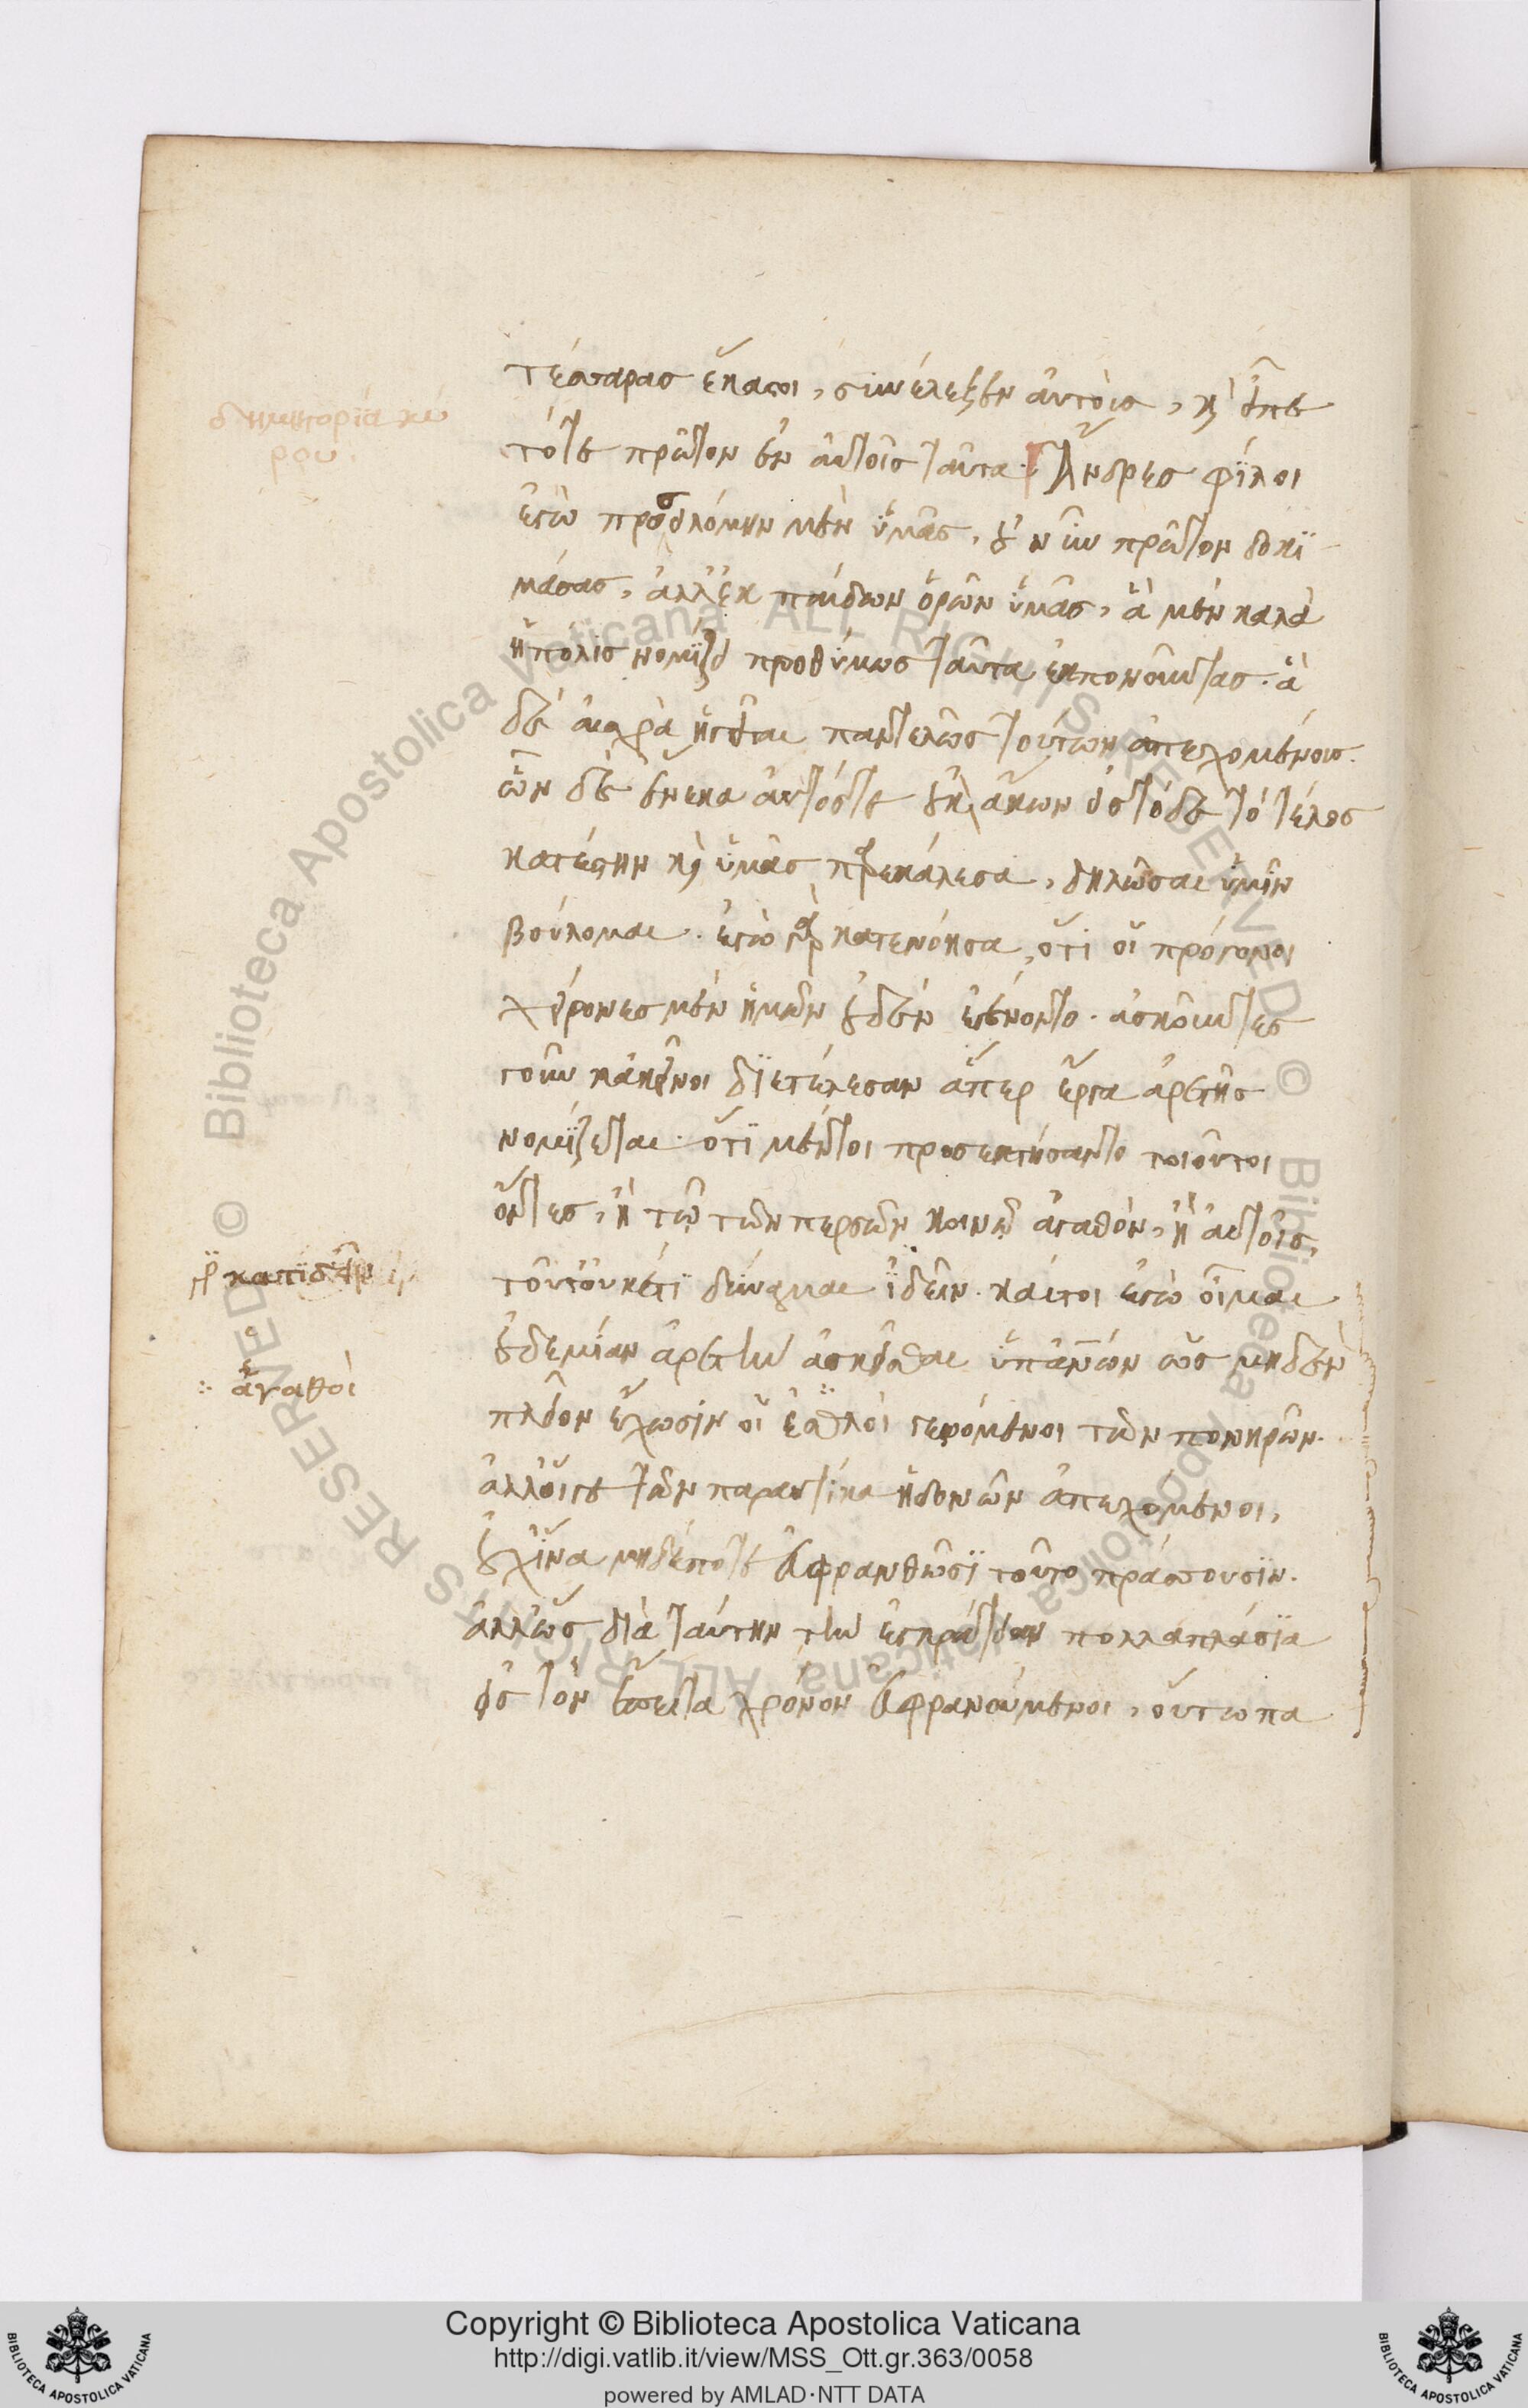 δημηγορία κύ
ρου.
τέσσαρας ἕκαστοι, συνέλεξεν αὐτοὺς, καὶ εἶπε
τότε πρῶτον ἐν αὐτοῖς ταῦτα. Ἄνδρες φίλοι
ἐγὼ προσειλόμην μὲν ὑμᾶς, οὐ νῦν πρῶτον δοκι
μάσας, ἀλλ' ἐκ παίδων ὁρῶν ὑμᾶς, ἃ μὲν καλὰ
ἡ πόλις νομίζει προθύμως ταῦτα ἐκπονοῦντας. ἃ
δὲ αἰσχρὰ ἡγεῖται παντελῶς τούτων ἀπεχομένους.
ὧν δὲ ἕνεκα αὐτός τε οὐκ ἄκων εἰς τόδε τὸ τέλος
κατέστην καὶ ὑμᾶς παρεκάλεσα, δηλῶσαι ὑμῖν
βούλομαι. ἐγὼ γὰρ κατενόησα, ὅτι οἱ πρόγονοι
χείρονες μὲν ἡμῶν οὐδὲν ἐγένοντο. ἀσκοῦντες
γοῦν κἀκεῖνοι διετέλεσαν ἅπερ ἔργα ἀρετῆς
νομίζεται. ὅτι μέντοι προσεκτήσαντο τοιοῦτοι
ὄντες, ἢ τῷ τῶν περσῶν κοινῷ ἀγαθὸν, ἢ αὑτοῖς,
τοῦτ' οὐκέτι δύναμαι ἰδεῖν. καίτοι ἐγὼ οἶμαι
οὐδεμίαν ἀρετὴν ἀσκεῖσθαι ὑπ' ἀνθρώπων ὡς μηδὲν
πλεῖον ἔχωσιν οἱ ἐσθλοὶ γενόμενοι τῶν πονηρῶν.
ἀλλ' οἵ γε τῶν παραυτίκα ἡδονῶν ἀπεχόμενοι,
οὐχ ἵνα μηδέποτε εὐφρανθῶσι τοῦτο πράσσουσιν.
ἀλλ' ὡς διὰ ταύτην τὴν ἐγκράτειαν πολλαπλάσια
εἰς τὸν ἔπειτα χρόνον εὐφρανούμενοι, οὕτω πα
γρ κατιδεῖν
ἀγαθοὶ
Copyright © Biblioteca Apostolica Vaticana
http://digi.vatlib.it/view/MSS_Ott.gr.363/0058
powered by AMLAD·NTT DATA